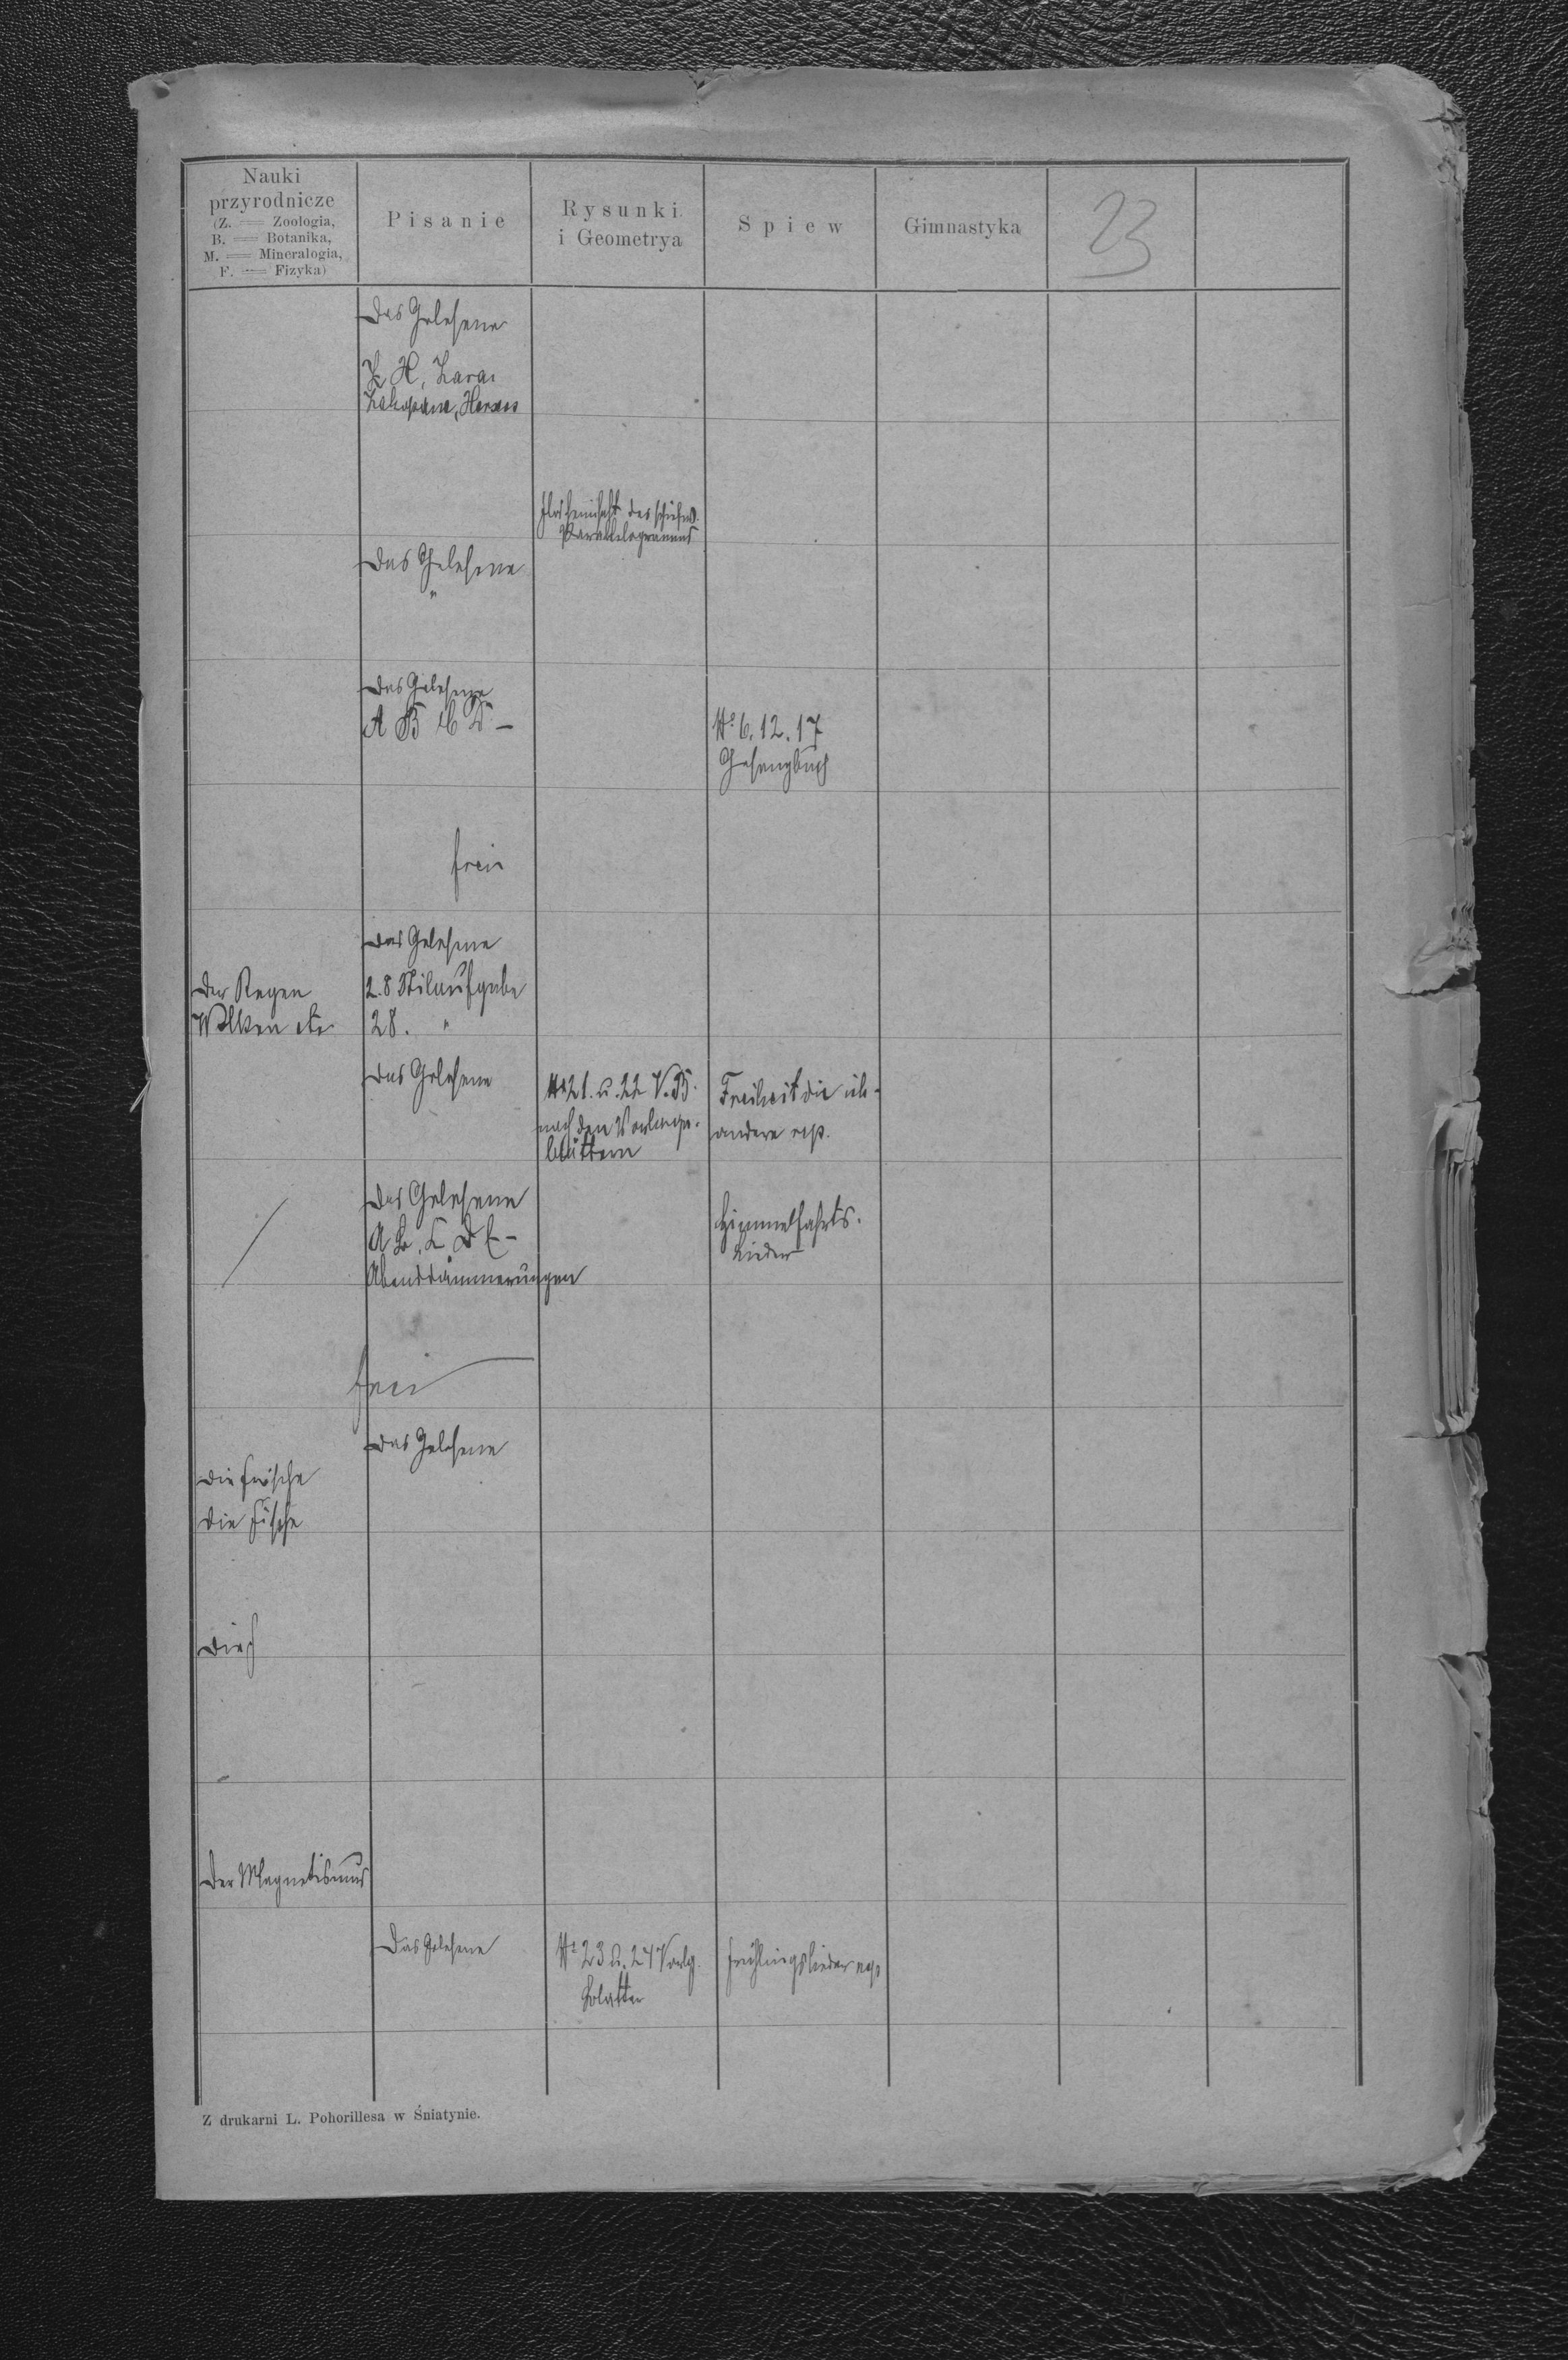 Nauki
przyrodnicze
(Z. = Zoologia,
B. = Botanika,
M. = Mineralogia,
F. = Fizyka)
Pisanie
Rysunki
i Geometrya
Spiew
Gimnastyka
23
Das Gelesene
H,
des schiefw.
Parallelogramms
Das Gelesene
"
Das Gelesene
A B C D –
No 6. 12. 17
Gesangbuch
frei
Das Gelesene
Der Regen
Wolken etc
2. 8 Stilaufgabe
28. "
Das Gelesene
No 21. u. 22 V. B.
nach den Vorlage-
blättern
Freiheit die
andere rep.
Das Gelesene
A B. C D E –
Abenddämmerungen
Himmelfahrts-
Lieder
frei
Das Gelesene
Die Frösche
Die Fische
Der Magnetismus
Das Gelesene
No 23 u. 24 Vorlg.
blätter
Frühlingslieder rep
Z drukarni L. Pohorillesa w Śniatynie.